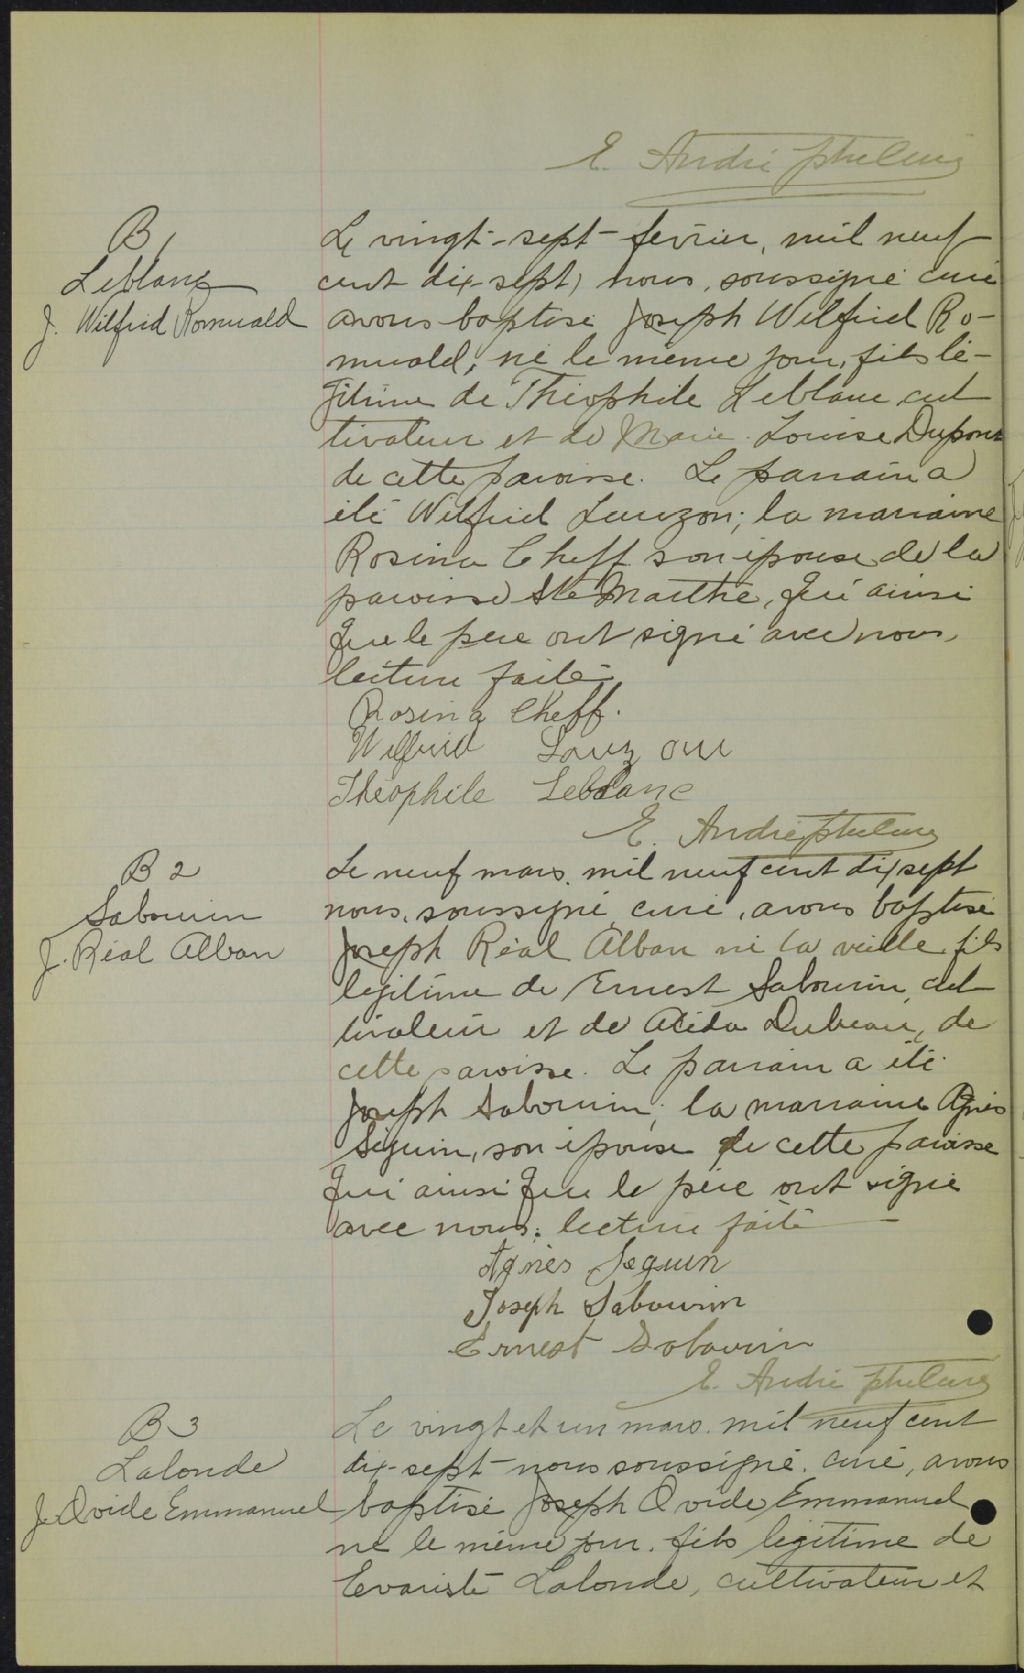 E. André ptre Curé
B 1
Leblanc
J. Wilfrid Romuald
Le vingt-sept-fevrier, mil neuf
cent dix-sept, nous, soussigné curé
avons baptisé Joseph Wilfrid Ro-
muald, né le même jour, fils lé-
gitime de Théophile Leblanc cul
tivateur et de Marie-Louise Dupont
de cette paroisse. Le parrain a
été Wilfrid Lauzon; la marraine
Rosina Cheff son épouse de la
paroisse Ste Marthe, qui ainsi
que le père ont signé avec nous,
lecture faite
Rosina Cheff.
Wilfrid Louzon
Théophile Leblanc
E. André ptre Curé
B 2
Sabourin
J. Réal Alban
Le neuf mars, mil neuf cent dix sept
nous, soussigné, curé, avons baptisé
Joseph Réal Alban né la veille fils
légitime de Ernest Sabourin, cul
tivateur et de Alida Dubeau, de
cette paroisse. Le parrain a été
Joseph Sabourin; la marraine Agnès
Séguin, son épouse de cette paroisse
qui ainsi que le père ont signé
avec nous. lecture faite
Agnès Seguin
Joseph Sabourin
Ernest Sabourin
E. André ptre Curé
B 3
Lalonde
J. Ovide Emmanuel
Le vingt et un mars, mil neuf cent
dix-sept nous soussigné, curé, avons
baptisé Joseph Ovide Emmanuel
né le même jour, fils légitime de
Evariste Lalonde, cultivateur et